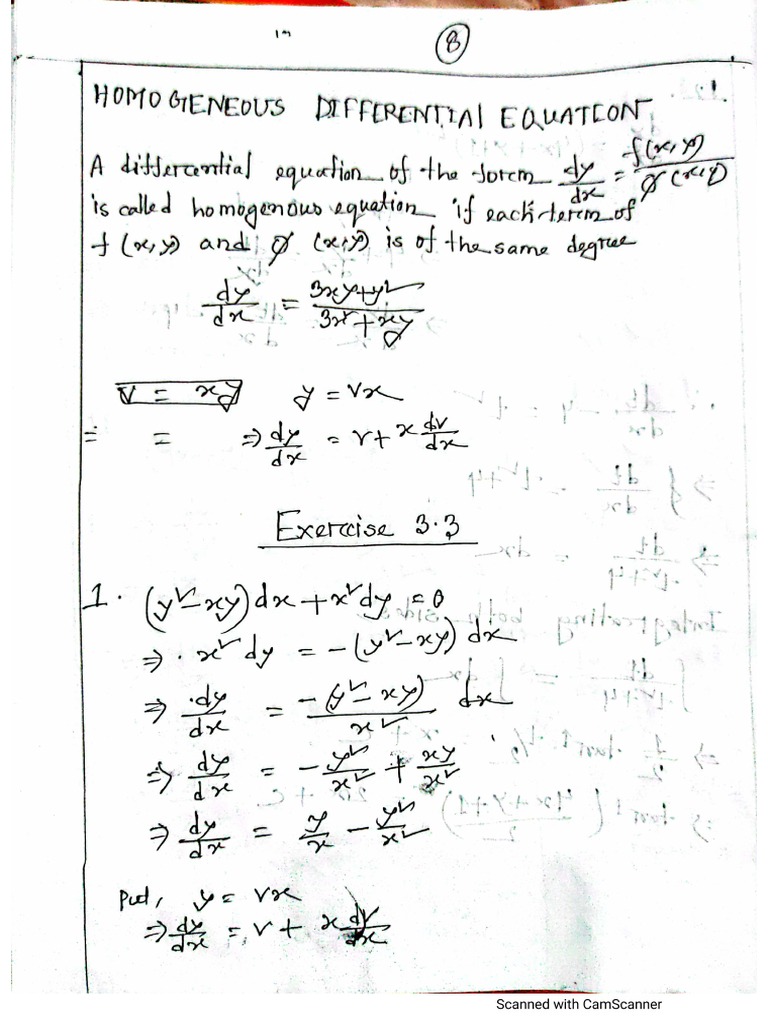 8
HOMOGENEOUS DIFFERENTIAL EQUATION
A differential equation of the form dy/dx = f(x,y)/φ(x,y)
is called homogenous equation if each term of
f(x,y) and φ(x,y) is of the same degree
dy/dx = (3xy+y²)/(3x²+xy)
v = xy y = vx
= = ⇒ dy/dx = v + x dv/dx
Exercise 3.3
1. (y²-xy)dx + x²dy = 0
⇒ x²dy = -(y²-xy)dx
⇒ dy/dx = -(y²-xy)/x² dx
⇒ dy/dx = -y²/x² + xy/x²
⇒ dy/dx = y/x - y²/x²
Put, y = vx
⇒ dy/dx = v + x dv/dx
Scanned with CamScanner